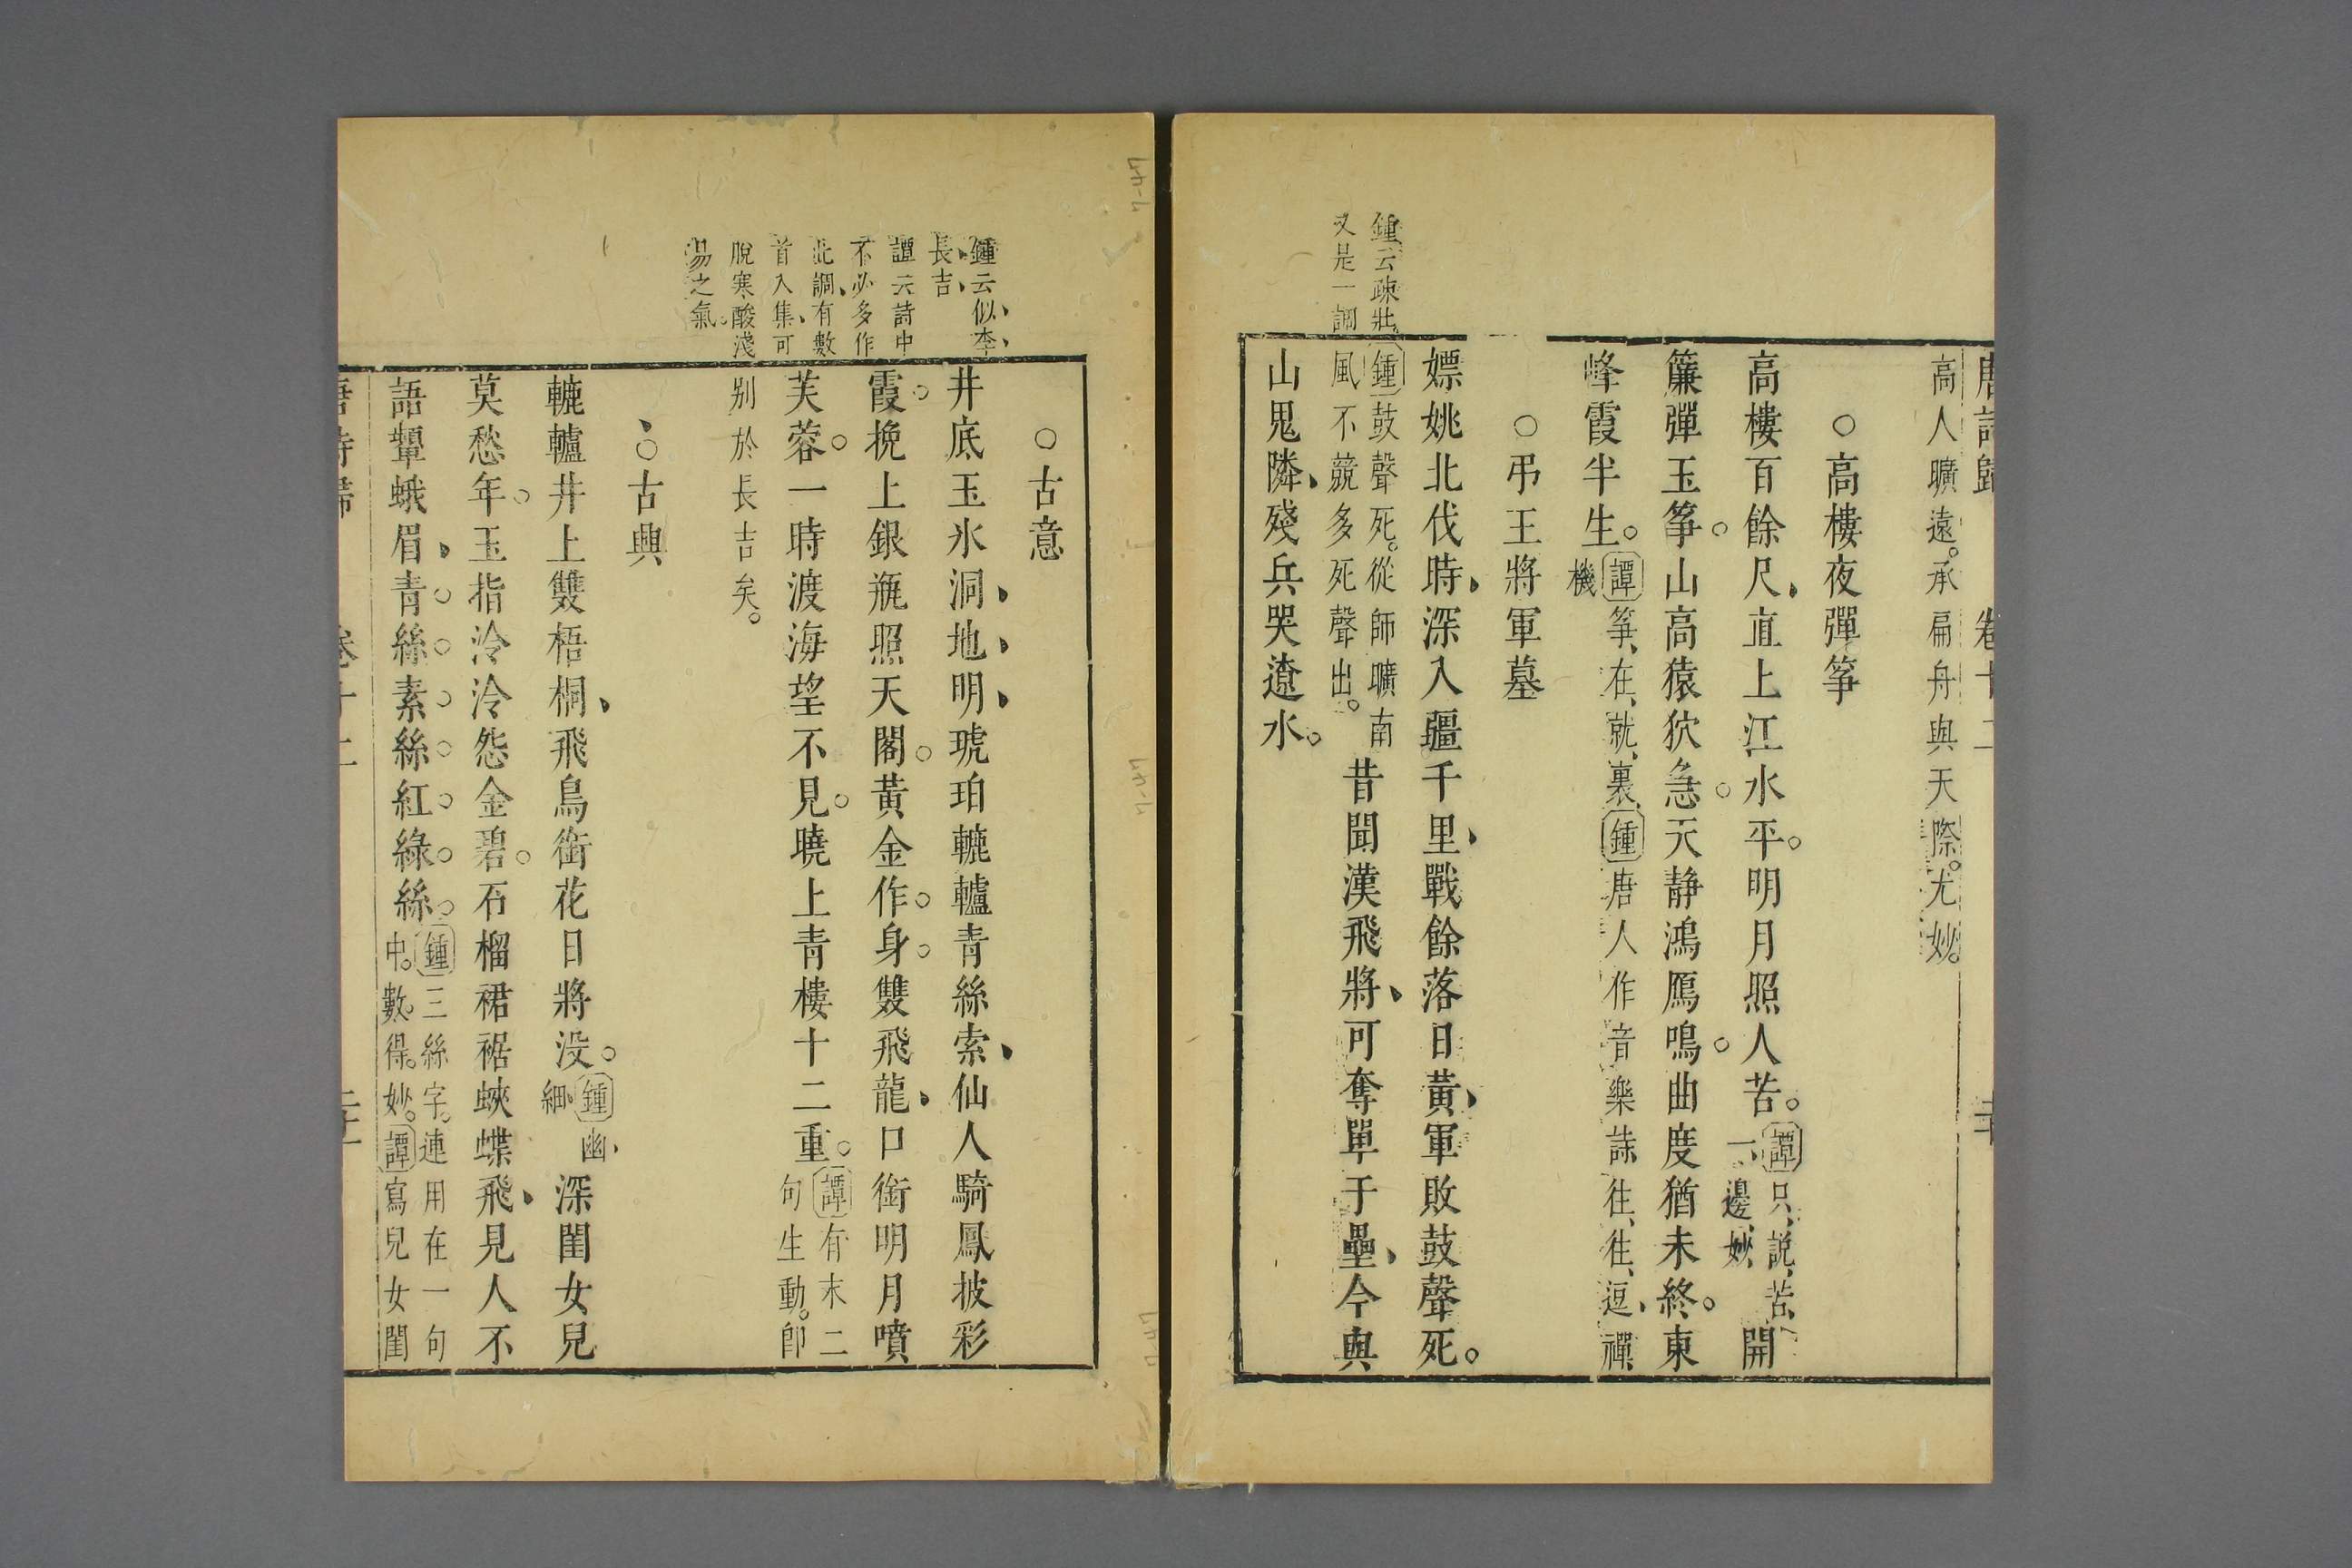 唐詩歸 卷十二
高人曠遠承扁舟與天際尤妙
○高樓夜彈筝
高樓百餘尺直上江水平明月照人苦譚只說苦一邊妙開
簾彈玉筝山高猿狖急天靜鴻鴈鳴曲度猶未終東
峰霞半生譚筝在就裏鍾唐人作音樂詩往往逗禪機
○弔王將軍墓
嫖姚北伐時深入疆千里戰餘落日黃軍敗鼓聲死
鍾云疎壯
又是一調
鍾鼓聲死從師曠南風不競多死聲出昔聞漢飛將可奪單于壘今與
山鬼隣殘兵哭遼水
○古意
鍾云似李
長吉
譚云詩中
不必多作
此調有數
首入集可
脫寒酸淺
易之氣
井底玉氷洞地明琥珀轆轤青絲索仙人騎鳳披彩
霞挽上銀瓶照天閣黃金作身雙飛龍口銜明月噴
芙蓉一時渡海望不見曉上青樓十二重譚有末二句生動卽
別於長吉矣
○古興
轆轤井上雙梧桐飛鳥銜花日將没鍾幽細深閨女兒
莫愁年玉指泠泠怨金碧石榴裙裾蛺蝶飛見人不
語顰蛾眉青絲素絲紅綠絲鍾三絲字連用在一句中數得妙譚寫兒女閨
唐詩歸 卷十二